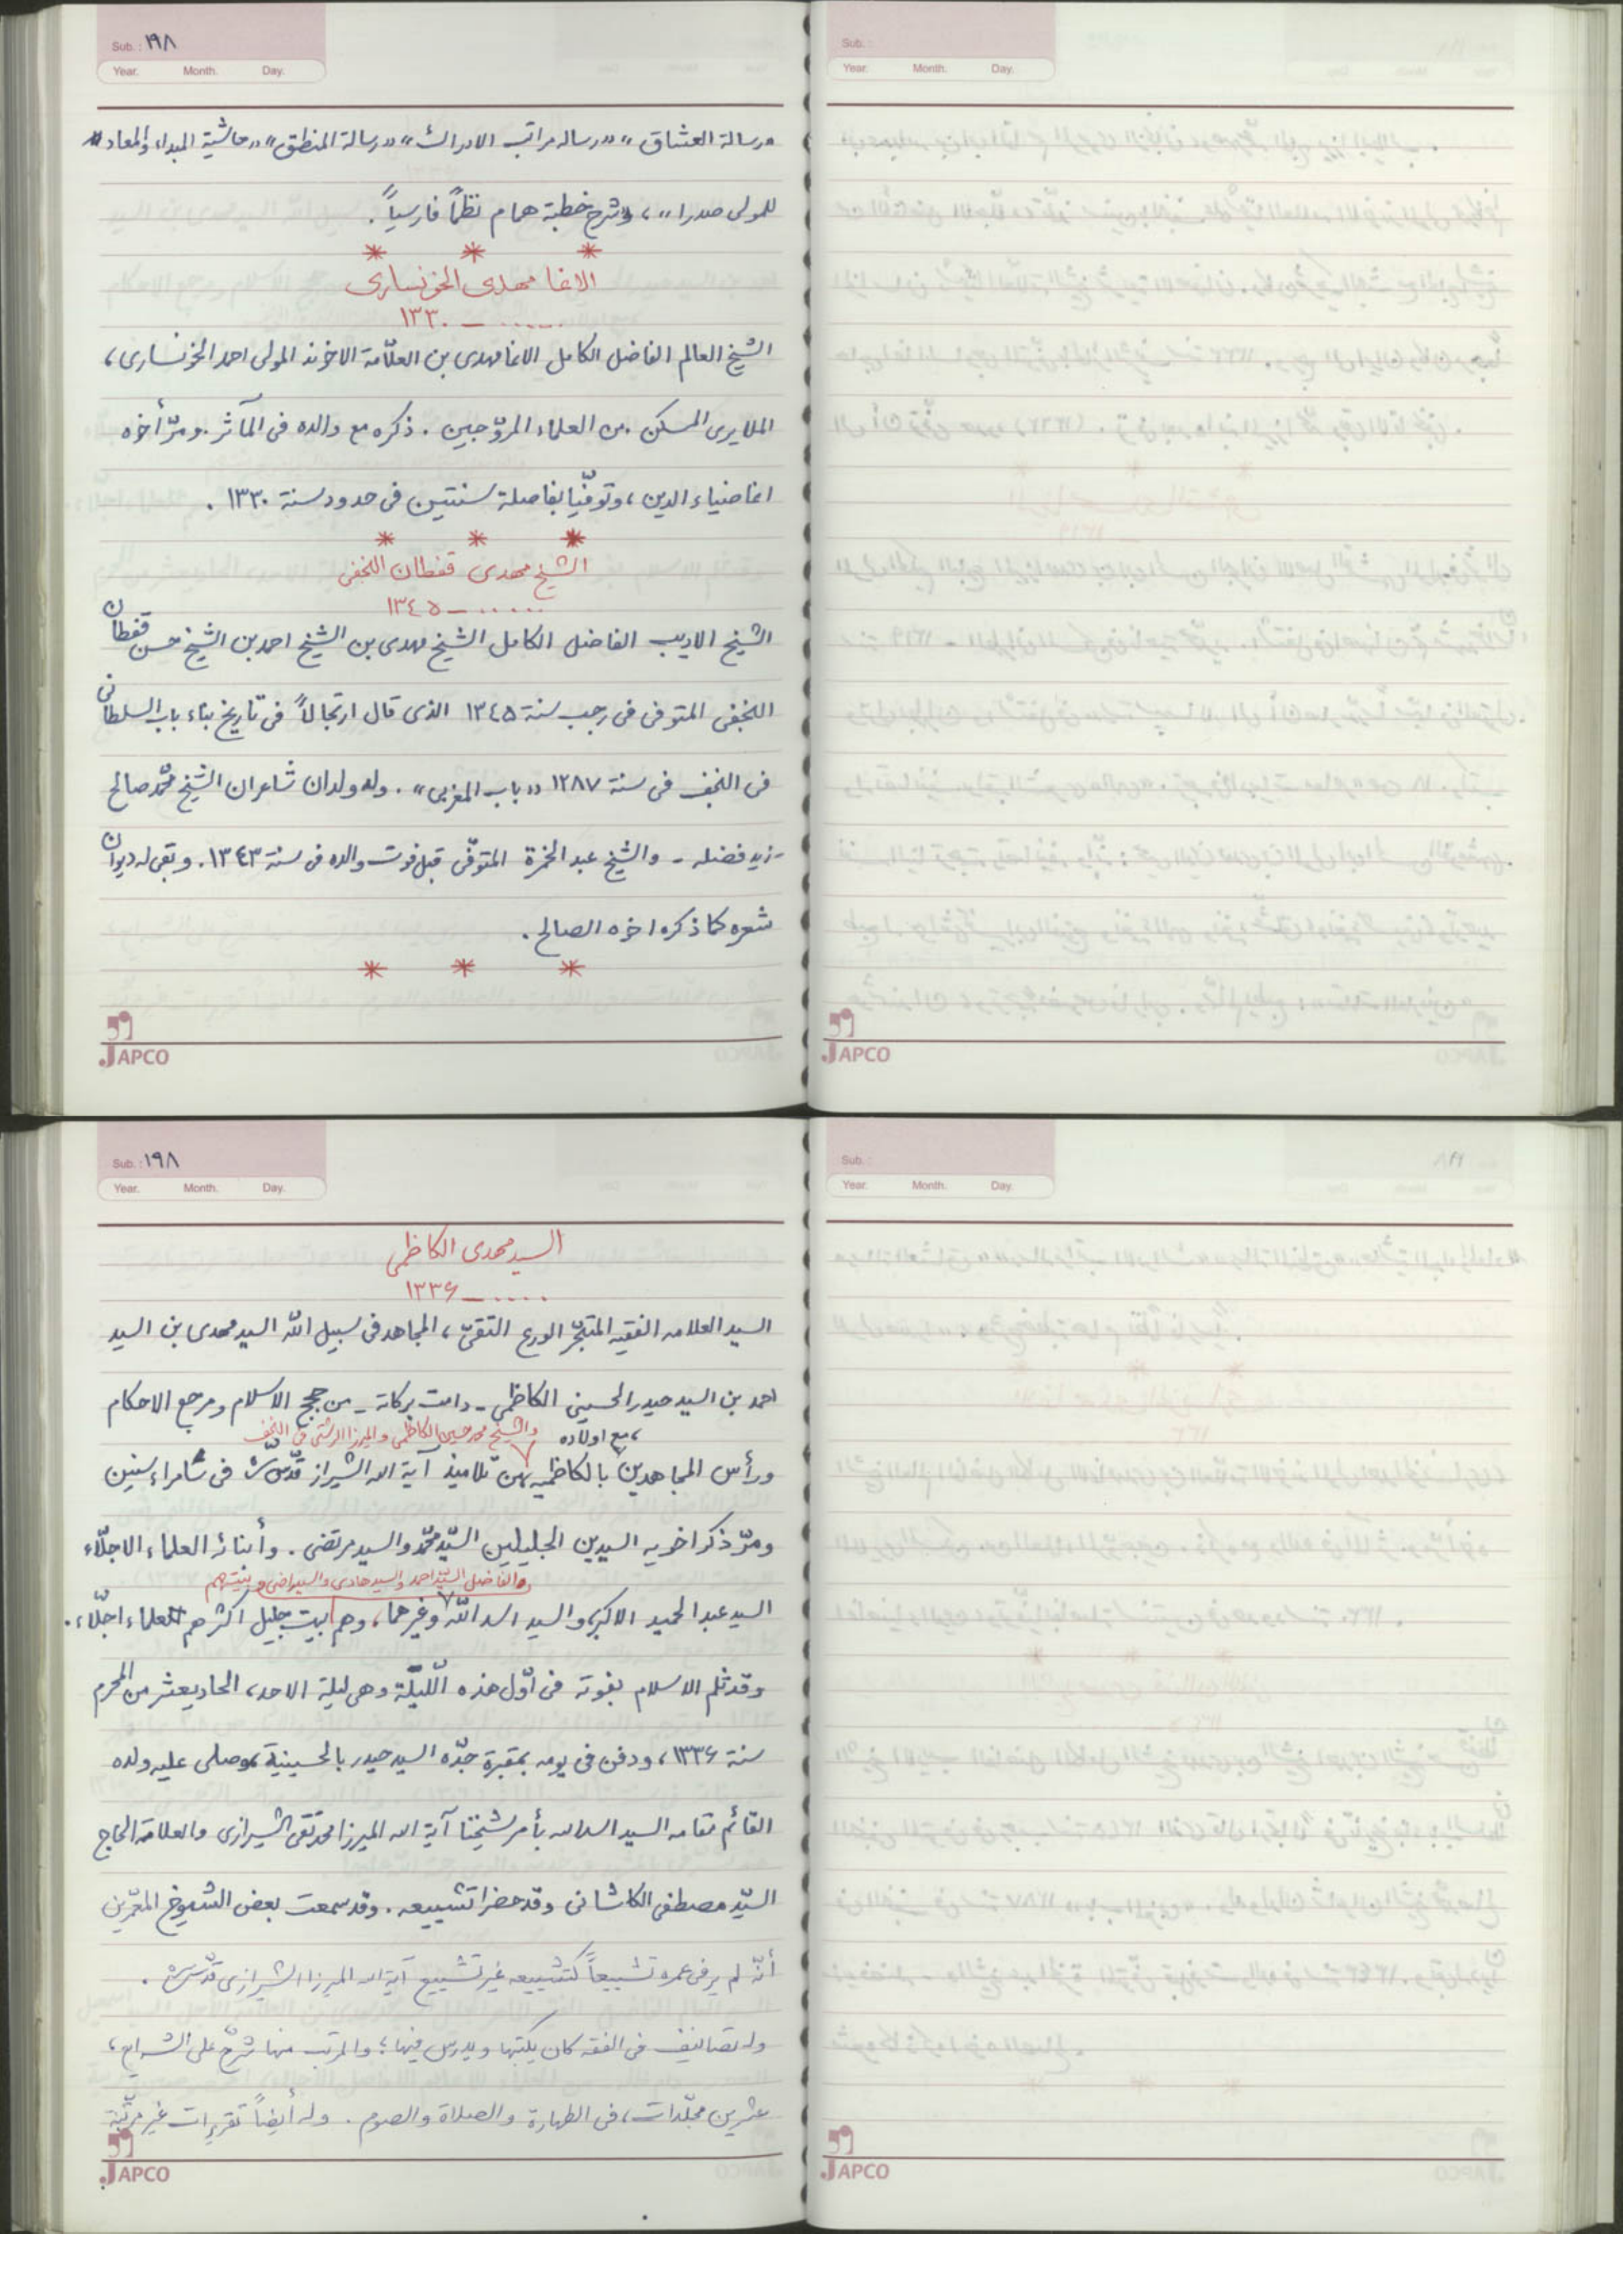 Sub.: ١٩٨
Year. Month. Day.
«رسالة العشاق»، «رساله مراتب الادراك» «رسالة المنطق» «حاشية المبداء والمعاد»
للمولى صدرا»، وشرح خطبة همام نظماً فارسياً.
* * *
الاغا مهدى الخونسارى
..... – ١٣٣٠
الشيخ العالم الفاضل الكامل الاغا مهدى بن العلّامة الاخوند المولى احمد الخونسارى،
الملايرى المسكن. من العلماء المروّجين. ذكره مع والده فى المآثر. ومرّ أخوه
اغا ضياء الدين، وتوفّيا بفاصلة سنتين فى حدود سنة ١٣٣٠.
* * *
الشيخ مهدى قفطان النجفى
..... – ١٣٤٥
الشيخ الاديب الفاضل الكامل الشيخ مهدى بن الشيخ احمد بن الشيخ حسن قفطان
النجفى المتوفى فى رجب سنة ١٣٤٥ الذى قال ارتجالاً فى تاريخ بناء باب السلطانى
فى النجف فى سنة ١٢٨٧ «باب المغربى». وله ولدان شاعران الشيخ محمّد صالح
- زيد فضله - والشيخ عبد الحمزة المتوفّى قبل فوت والده فى سنة ١٣٤٣. وبقى له ديوان
شعره كما ذكره اخوه الصالح.
* * *
JAPCO
Sub.:
Year. Month. Day.
JAPCO
Sub.: ١٩٨
Year. Month. Day.
السيد مهدى الكاظمى
.... – ١٣٣۶
السيد العلامه الفقيه المتبحّر الورع التقىّ، المجاهد فى سبيل اللّه السيد مهدى بن السيد
احمد بن السيد حيدر الحسينى الكاظمى - دامت بركاته - من حجج الاسلام ومرجع الاحكام
، مع اولاده والشيخ محمد حسين الكاظمى والميرزا الرشتى فى النجف
ورأس المجاهدين بالكاظميه من تلاميذ آية الله الشيرازى قدّس سرّه فى سامراء سنين
ومرّ ذكر اخويه السيدين الجليلين السيّد محمّد والسيد مرتضى. وأبنائه العلماء الاجلّاء
والفاضل السيّد احمد والسيد هادى والسيد راضى وبنيتهم
السيد عبد الحميد الاكبر، والسيد اسد اللّه وغيرهما، وهم بيت جليل اكثرهم علماء اجلّاء.
وقد ثلم الاسلام بفوته فى أوّل هذه اللّيلة وهى ليلة الاحد، الحاديعشر من المحرم
سنة ١٣٣۶، ودفن فى يومه بمقبرة جدّه السيد حيدر بالحسينية، وصلى عليه ولده
القائم مقامه السيد اسد الله بأمر شيخنا آية الله الميرزا محمد تقى الشيرازى والعلامة الحاج
السيّد مصطفى الكاشانى وقد حضرا تشييعه. وقد سمعت بعض الشيوخ المعمّرين
أنّه لم ير فى عمره تشييعاً كتشييعه غير تشييع آية الله الميرزا الشيرازى قدّس سرّه.
وله تصانيف فى الفقه كان يكتبها ويدرس فيها؛ والمرتب منها شرح على الشرايع،
عشرين مجلّدات، فى الطهارة والصلاة والصوم. وله أيضاً تقريرات غير مرتّبة
JAPCO
Sub.:
Year. Month. Day.
JAPCO